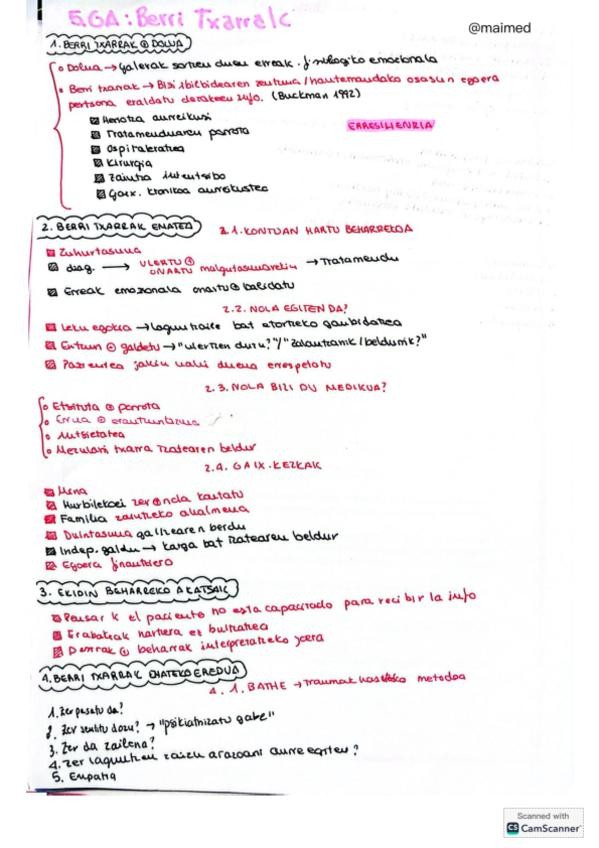 5.GA: Berri Txarrak
@maimed
1. BERRI TXARRAK ⊕ DOLUA
Dolua → galerak sortzen duen erreak. fisiologiko emozionala
Berri txarrak → Bizi ibilbidearen zentzuna/hautemandako osasun egoera
pertsona eraldatu dezakeen info. (Buckman 1992)
Heriotza aurreikusi
Tratamenduaren porrota
ERRESILIENZIA
Ospitaleratzea
Kirurgia
Zaintza intentsibo
Gaix. kronikoa aurrekustea
2. BERRI TXARRAK EMATEA
2.1. KONTUAN HARTU BEHARREKOA
Zuhurtasuna
diag. → ULERTU ⊕ ONARTU malgutasunarekin → Tratamendu
Erreak emozionala onartu ⊕ balidatu
2.2. NOLA EGITEN DA?
Leku egokia → laguntzaile bat etortzeko gonbidatzea
Entzun ⊕ galdetu → "ulertzen duzu?"/"zalantzarik/beldurrik?"
Pazientea jakin nahi duena errespetatu
2.3. NOLA BIZI DU MEDIKUA?
Etsituta ⊕ porrota
Errua ⊕ erantzunkizuna
Antsietatea
Mezulari txarra izatearen beldur
2.4. GAIX. KEZKAK
Mina
Hurbilekoei zer ⊕ nola kontatu
Familia zaintzeko ahalmena
Duintasuna galtzearen berdu
Indep. galdu → karga bat izatearen beldur
Egoera finantziero
3. EKIDIN BEHARREKO AKATSAK
Pensar k el paciente no esta capacitado para recibir la info
Erabakiak hartzera ez bultzatzea
Denrak ⊕ beharrak interpretatzeko joera
4. BERRI TXARRAK EMATEKO EREDUA
4.1. BATHE → traumak hasteko metodoa
1. Zer pasatu da?
2. Zer sentitu dozu? → "psikiatrizatu gabe"
3. Zer da zailena?
4. Zer laguntzen zaizu arazoani aurre egiten?
5. Enpatia
Scanned with
CS CamScanner